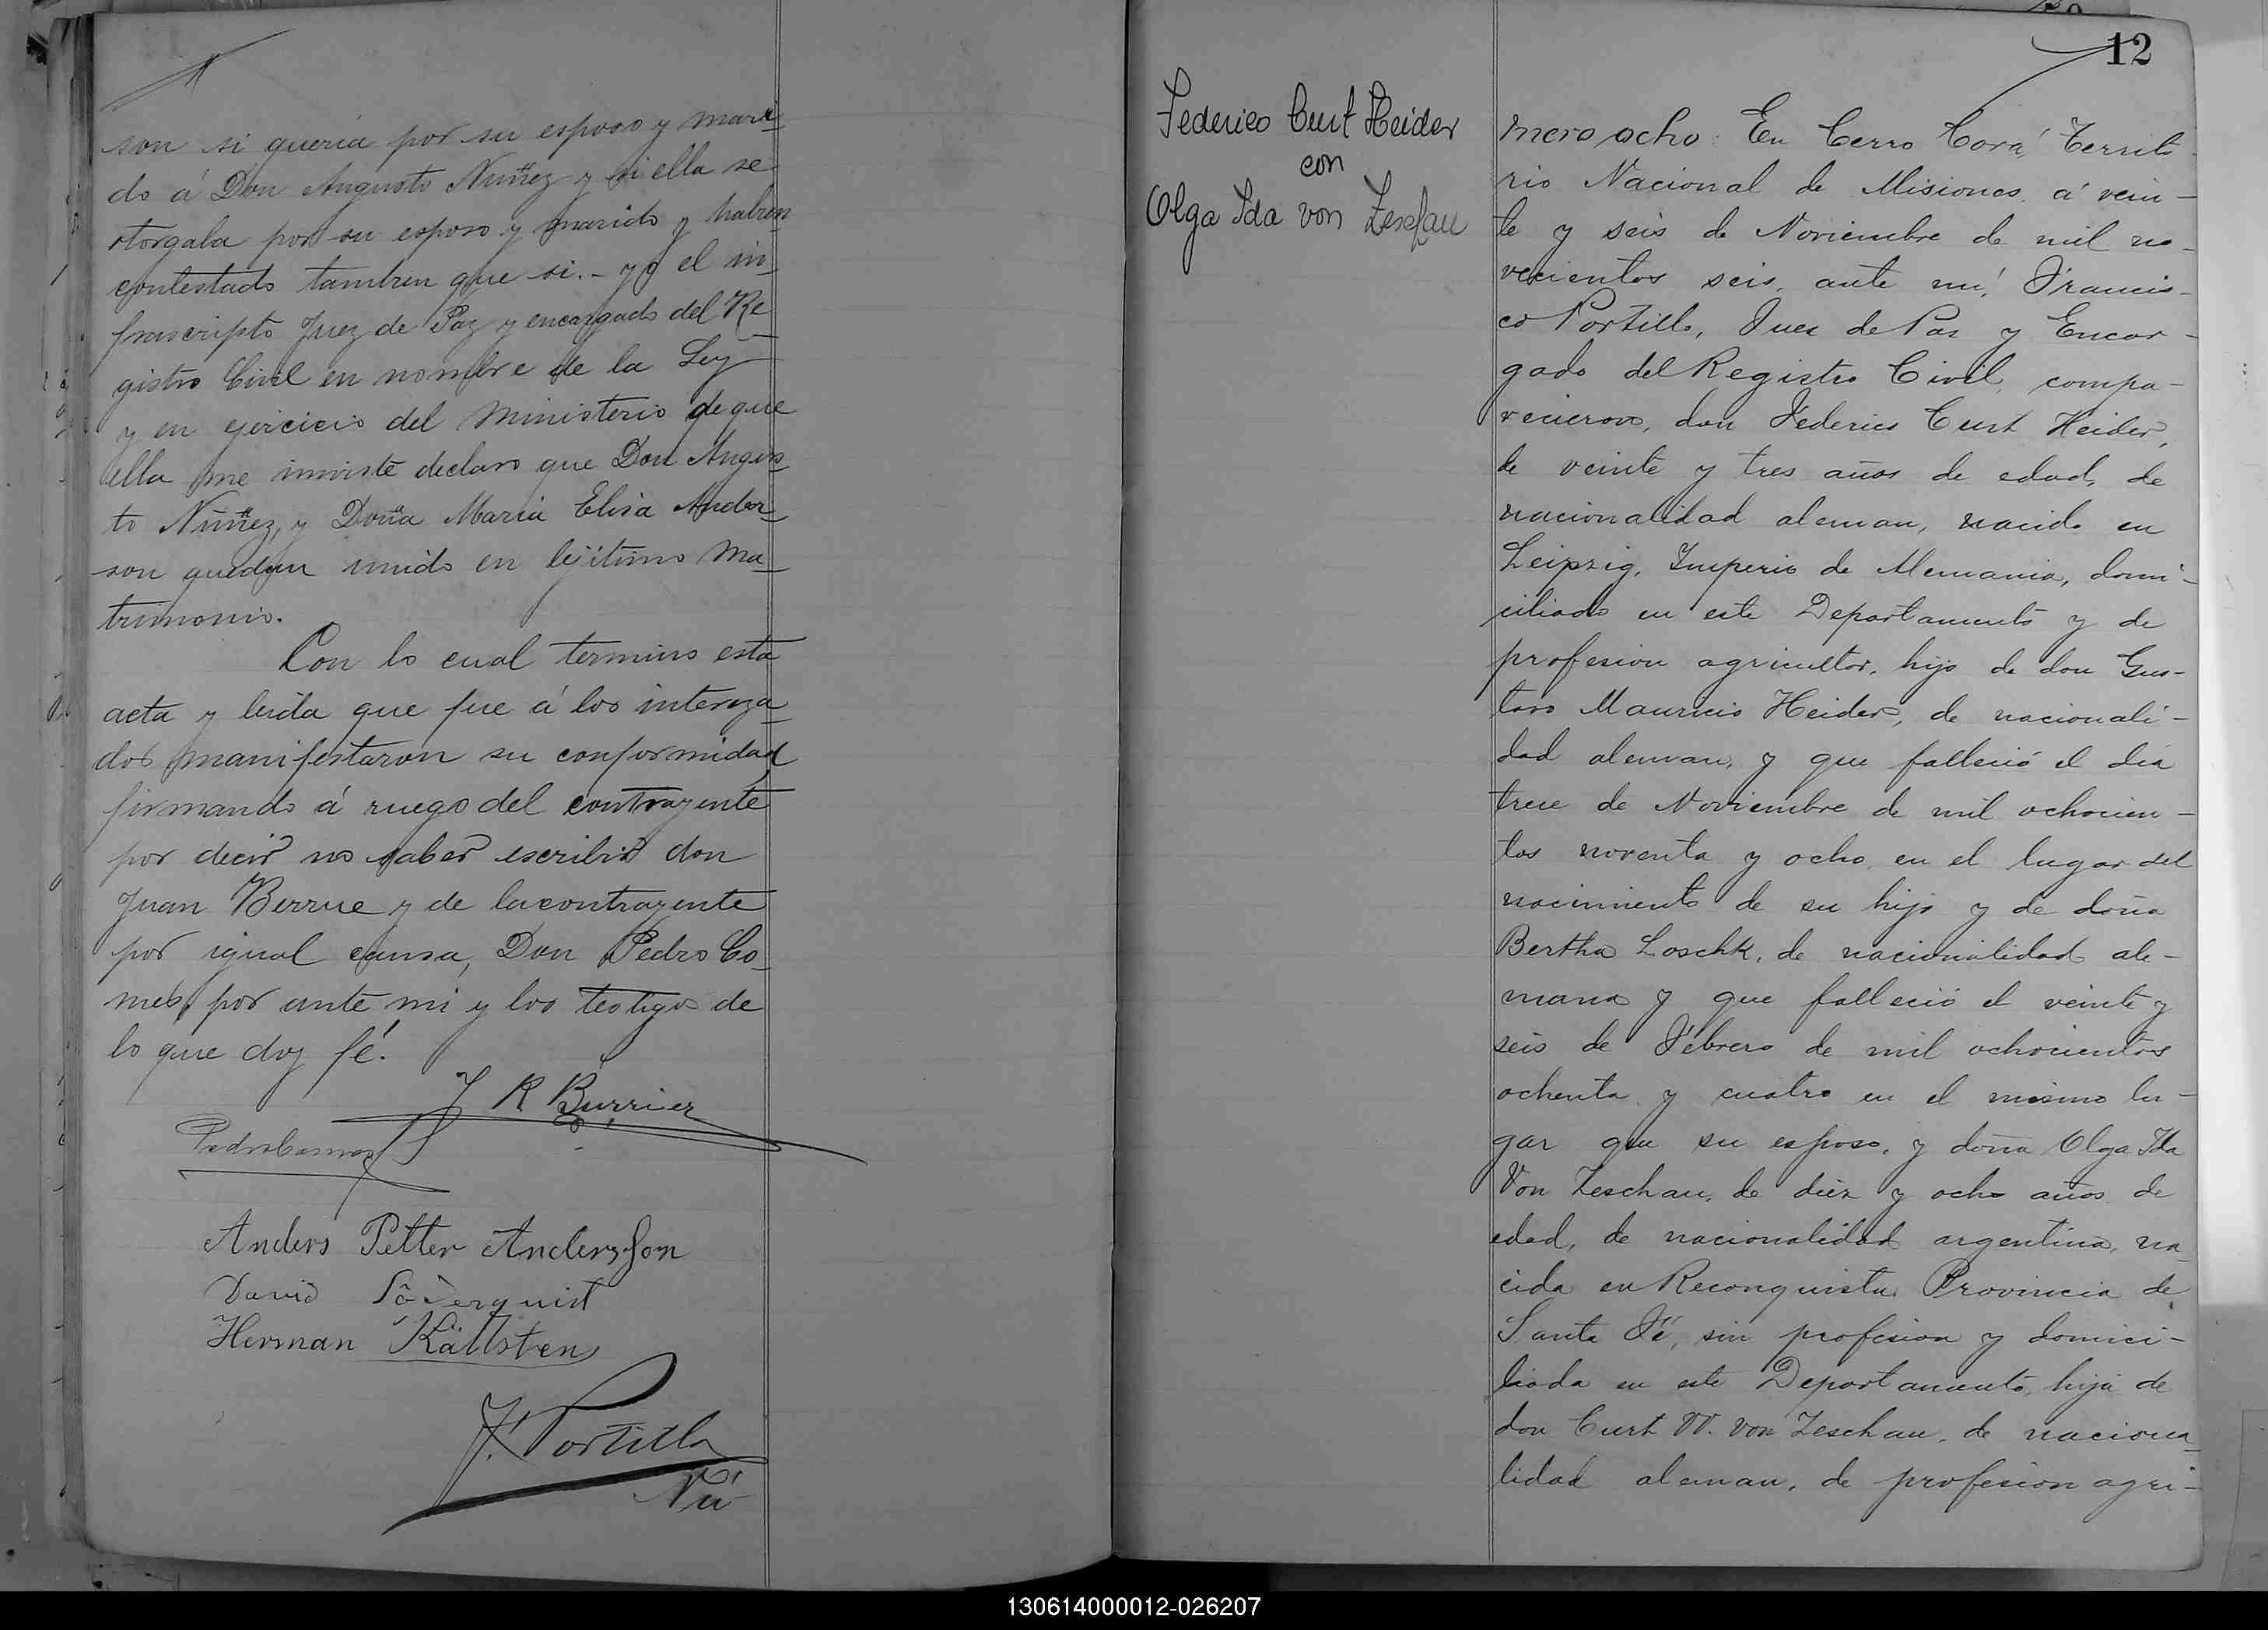 son si queria por su esposo y mari-
do á Don Augusto Nuñez y si ella se
otorgaba por su esposo y marido y habien
contestado tambien que si. - yo el in-
frascripto Juez de Paz y encargado del Re-
gistro Civil en nombre de la Ley
y en ejercicio del ministerio de que
ella me inviste declaro que Don Augus-
to Nuñez, y Doña Maria Elisa Ander-
son quedan unido en lejitimo ma-
trimonio.
Con lo cual termino esta
acta y leida que fue á los intereza-
dos manifestaron su conformidad
firmando á ruego del contrayente
por decir no saber escribir don
Juan Berrue y de la contrayente
por igual causa, Don Pedro Co-
mes, por ante mi y los testigos de
lo que doy fé.
J R Burrier
Pedro Comes
Anders Petter Andersson
David Söderquist
Herman Källsten
F. Portillo
Nú-
12
Federico Curt Heider
con
Olga Ida von Zeschau
mero ocho: En Cerro Corá, Territo-
rio Nacional de Misiones, á vein-
te y seis de Noviembre de mil no-
vecientos seis, ante mí, Francis-
co Portillo, Juez de Paz y Encar-
gado del Registro Civil, compa-
recieron, don Federico Curt Heider,
de veinte y tres años de edad, de
nacionalidad aleman, nacido en
Leipzig, Imperio de Alemania, domi-
ciliado en este Departamento y de
profesion agricultor, hijo de don Gus-
tavo Mauricio Heider, de nacionali-
dad aleman, y que falleció el dia
trece de Noviembre de mil ochocien-
tos noventa y ocho en el lugar del
nacimiento de su hijo y de doña
Bertha Loschk, de nacionalidad ale-
mana y que falleció el veinte y
seis de Febrero de mil ochocientos
ochenta y cuatro en el mismo lu-
gar que su esposo, y doña Olga Ida
Von Zeschau, de diez y ocho años de
edad, de nacionalidad argentina, na-
cida en Reconquista Provincia de
Santa Fé, sin profesion y domici-
liada en este Departamento, hija de
don Curt W. von Zeschau, de naciona-
lidad aleman, de profesion agri-
130614000012-026207